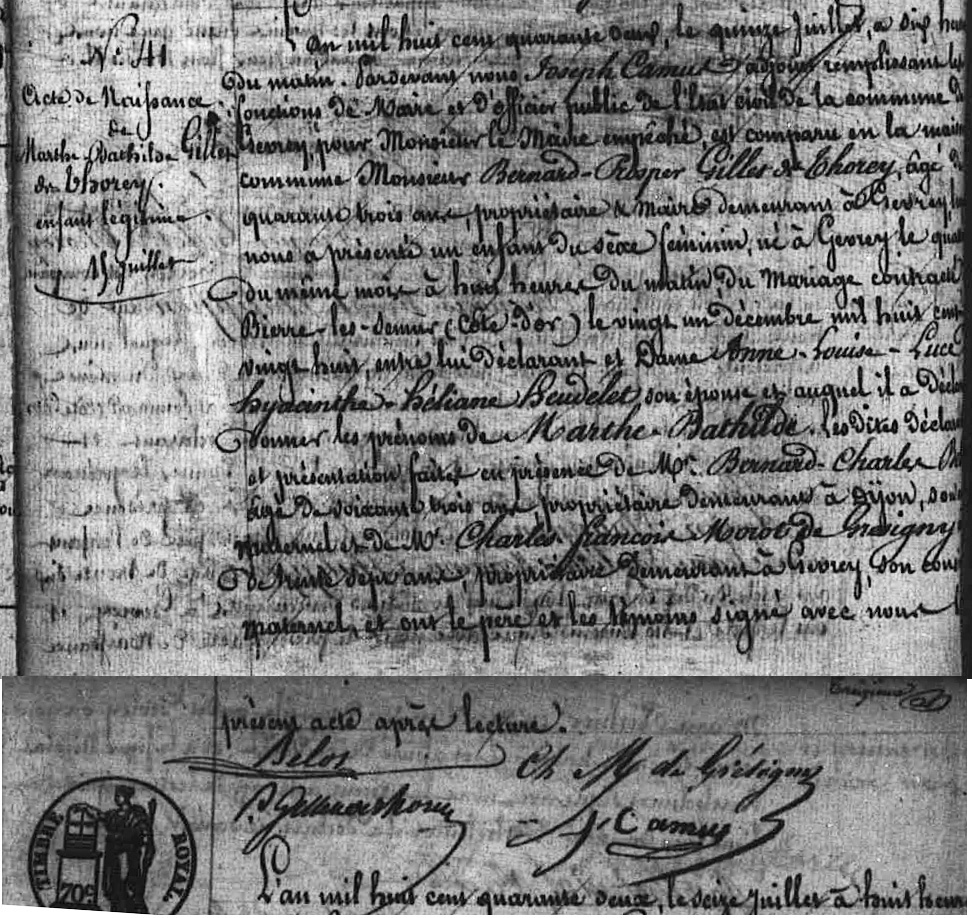 N.º 41
Acte de Naissance
de
Marthe Bathilde Gilles
de Thorey.
enfant légitime.
15 Juillet
L'an mil huit cent quarante deux, le quinze Juillet, à six heu
du matin. Pardevant nous Joseph Camus adjoint remplissant les
fonctions de Maire et d'officier public de l'Etat civil de la commune de
Gevrey, pour Monsieur le Maire empêché, est comparu en la mais
commune Monsieur Bernard-Prosper Gilles de Thorey, âgé de
quarante trois ans, propriétaire & Maire demeurant à Gevrey,
nous a présenté un enfant du sèxe féminin, né à Gevrey le qua
du même mois à huit heures du matin, du Mariage contract
Bierre-les-Semur (Côte-d'or) le vingt un décembre mil huit cent
vingt huit, entre lui déclarant et Dame Anne-Louise-Luce
hyacinthe-héliane Beudelet, son épouse et auquel il a décla
donner les prénoms de Marthe-Bathilde. Les dites déclara
et présentation faites en présence de Mr. Bernard-Charles
âgé de soixante trois ans propriétaire demeurant à Dijon, son
maternel et de Mr. Charles-françois Morot de Grésigny
de trente sept ans, propriétaire demeurant à Gevrey, son cous
maternel, et ont le père et les témoins signé avec nous l
présent acte après lecture.
Belot
Ch M de Grésigny
P. Gilles de thorey
J. Camus
TIMBRE ROYAL
70c
L'an mil huit cent quarante deux, le seize Juillet à huit heur